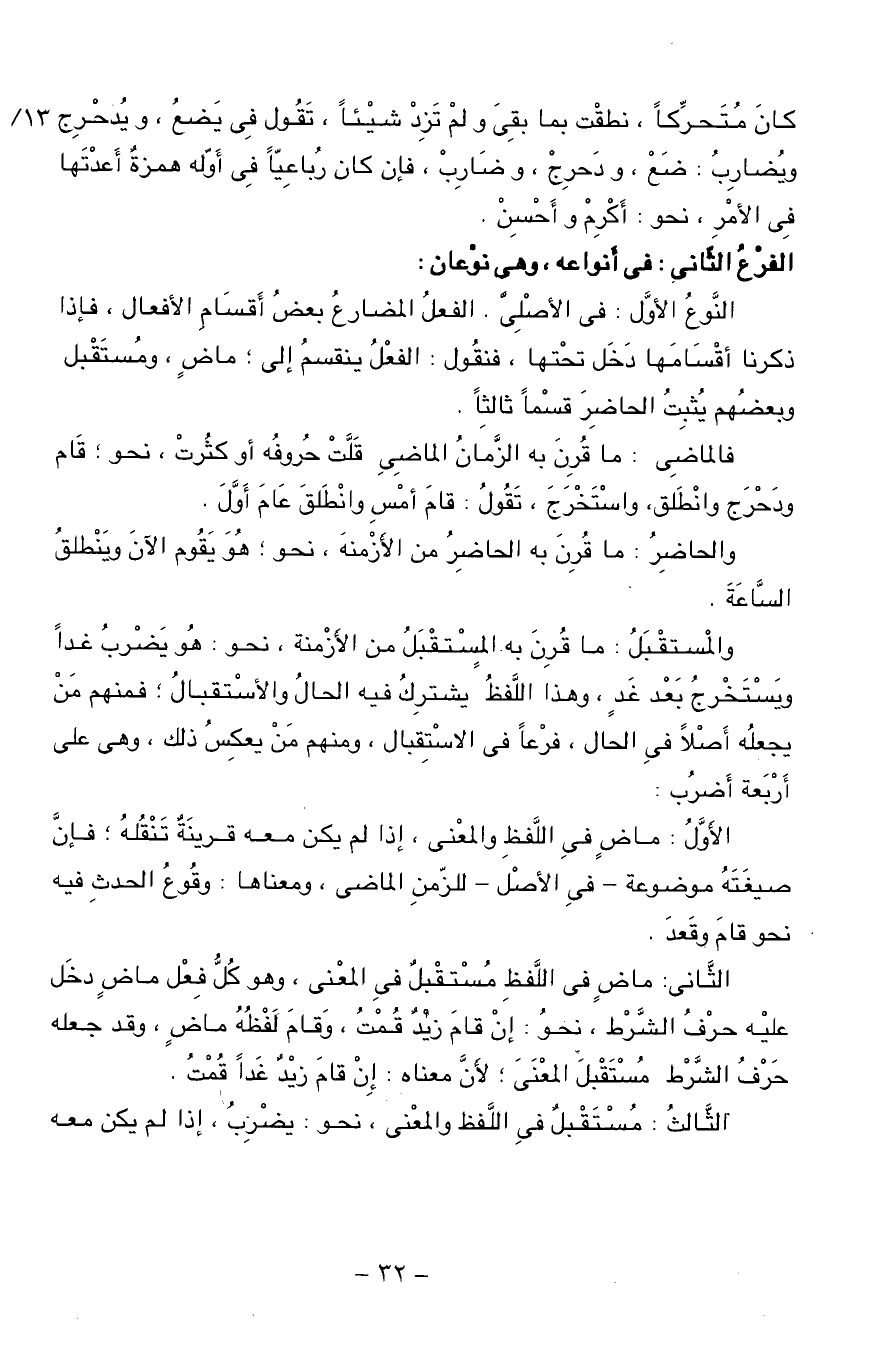 كانَ مُتَحرِّكاً ، نطقْت بما بقىَ و لمْ تَزِدْ شيْئاً ، تَقُول فى يَضعُ ، و يُدحْرِج ١٣/
ويُضاربُ : ضَعْ ، و دَحرِجْ ، و ضَارِبْ ، فإن كان رُباعِيّاً فى أَوّله همزةٌ أعدْتَها
فِى الأمْرِ ، نحو : أَكْرِمْ و أَحْسِنْ .
الفرْعُ الثَّانى : فى أنواعه ، وهى نوْعان :
النَّوعُ الأوَّل : فى الأصْلىَّ . الفعلُ المضارعُ بعضُ أقسَامِ الأفعال ، فإذا
ذكرنا أقْسَامَها دَخَل تحْتها ، فنقُول : الفعْلُ ينقسمُ إلى ؛ ماضٍ ، ومُستَقْبل
وبعضُهم يُثبتُ الحاضرَ قسْماً ثالثاً .
فالماضى : ما قُرنَ به الزَّمانُ الماضِى قَلَّتْ حُروفُه أو كثُرتْ ، نحو ؛ قَام
ودَحْرَج وانْطلَق، واسْتَخْرَجَ ، تَقُولُ : قامَ أمْسِ وانْطلَقَ عَامَ أوَّلَ .
والحاضرُ : ما قُرنَ به الحاضرُ من الأزْمنهَ ، نحو ؛ هُوَ يَقُوم الآنَ ويَنْطلقُ
السَّاعَةَ .
والْمستقْبَلُ : ما قُرنَ به المسْتقْبَلُ من الأزْمنة ، نحو : هُو يَضْربُ غداً
ويَسْتَخْرِجُ بَعْد غَدٍ ، وهذا اللَّفظُ يشتركُ فيه الحالُ والأسْتقبالُ ؛ فمنهم مَنْ
يجعلُه أصْلاً فى الحال ، فرْعاً فى الاسْتقبال ، ومنهم مَنْ يعكسُ ذلك ، وهى على
أرْبَعة أضرُب :
الأوَّلُ : ماضٍ فىِ اللَّفظِ والمعْنى ، إذا لم يكن معه قرينَةٌ تَنْقلُهُ ؛ فإنَّ
صيغَتَهُ موضوعة – فىِ الأصْل – للزّمنِ الماضى ، ومعناها : وقُوعُ الحدثِ فيه
نحو قامَ وقَعدَ .
الثَّانى: ماضٍ فى اللَّفظِ مُسْتقْبلٌ فىِ المعْنى ، وهو كُلُّ فعْل ماضٍ دخَل
عليْه حرْفُ الشَّرْط ، نحوُ : إنْ قامَ زيْدٌ قُمْتُ ، وَقامَ لَفْظُهُ ماضٍ ، وقد جعله
حَرْفُ الشَّرْطِ مُسْتَقْبلَ المعْنَىَ ؛ لأنَّ معناه : إنْ قامَ زيْدٌ غَداً قُمْتُ .
الثَّالثُ : مُسْتَقْبلٌ فىِ اللَّفظ والمعْنى ، نحو : يضْربُ ، إذا لم يكن معه
– ٣٢ –